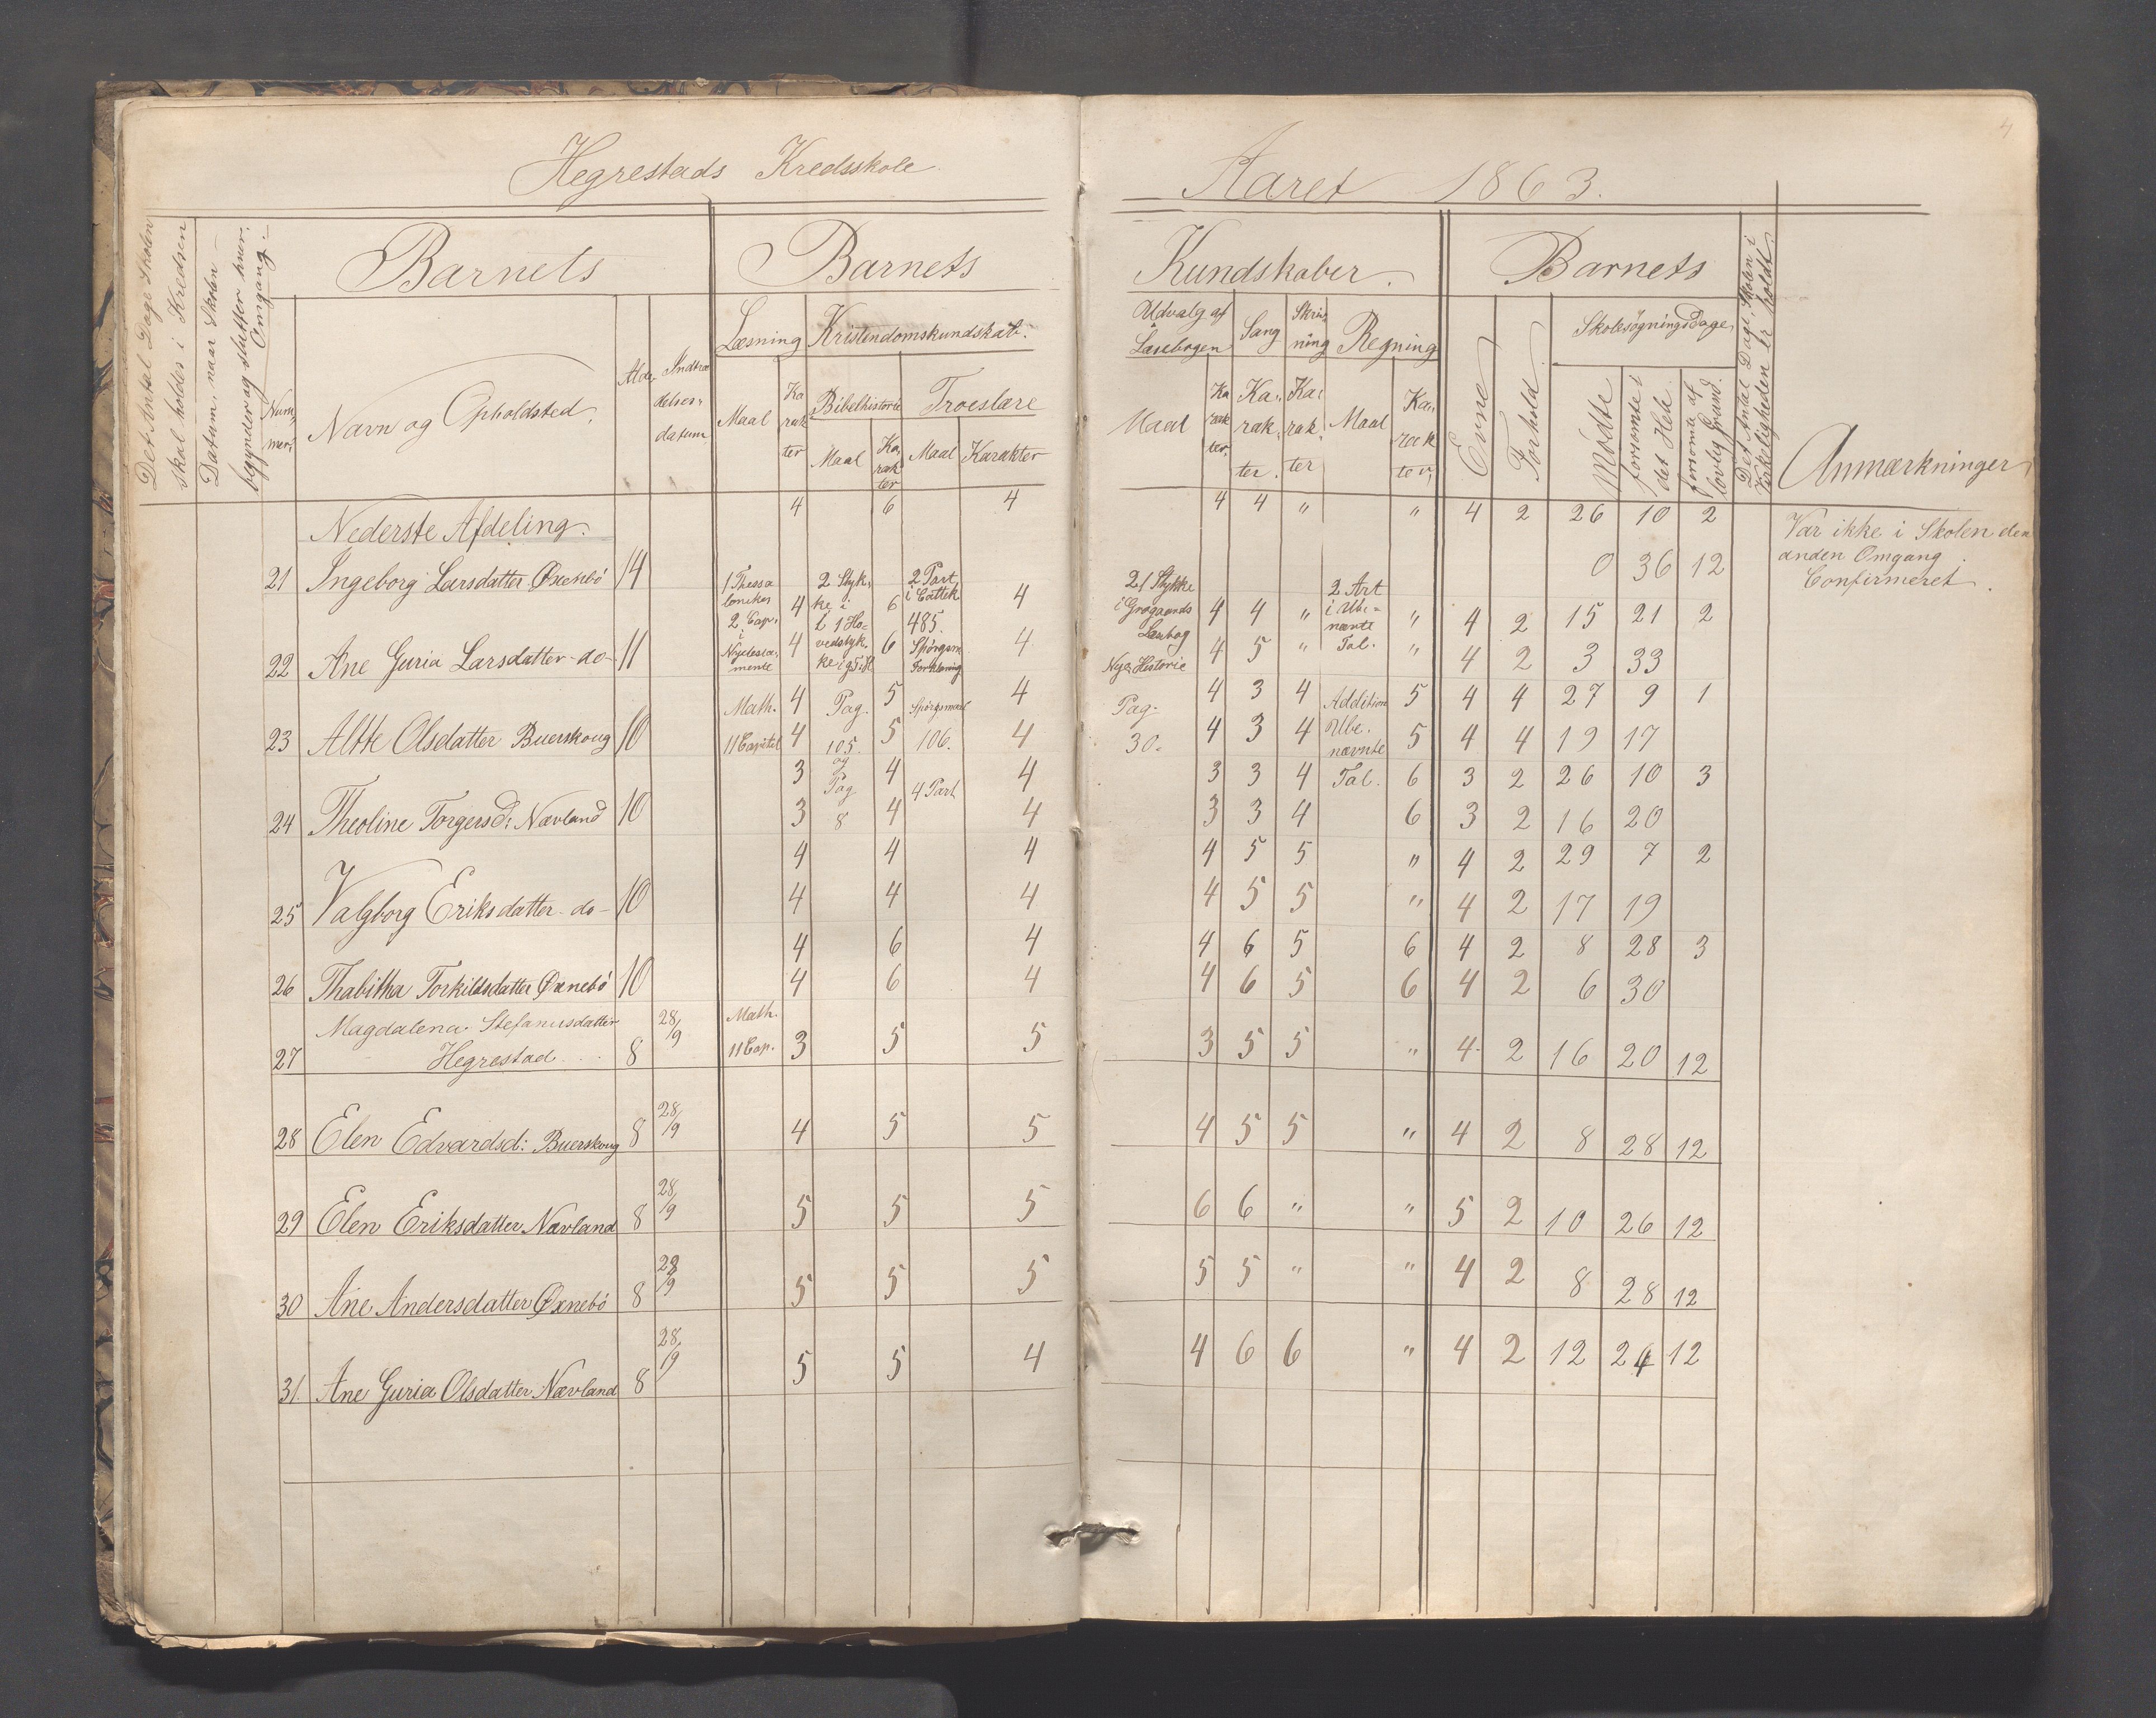 4
Hegrestads Kredsskole
Aaret 1863.
Det Antal Dage Skolen
skal holdes i Kredsen
Datum, naar Skolen
begynder og slutter hver
Omgang.
Barnets
Barnets
Num-
mer.
Navn og Opholdsted.
Alder
Indtræ
delses-
datum
Læsning
Kristendomskundskab.
Maal
Ka
rak
ter
Bibelhistorie
Troeslære
Maal
Ka
rak
ter
Maal
Karakter
Kundskaber.
Barnets
Udvalg af
Læsebogen
Sang
Skriv-
ning
Regning
Maal
Ka
rak
ter.
Ka-
rak-
ter.
Ka-
rak-
ter
Maal
Ka-
rak
ter,
Evne
Forhold
Skolesøgningsdage,
Mødte
forsømte i
det Hele
forsømte af
lovlig Grund.
Det Antal Dage, Skolen i
Virkeligheden er holdt
Anmærkninger
Nederste Afdeling.
4 6 4 4 4 " " 4 2 26 10 2
21 Ingeborg Larsdatter Øxnebö 14
0 36 12
Var ikke i Skolen den
anden Omgang.
Confirmeret.
1 Thessa
lonikes
2 Cap.
i
Nyetesta-
mente
2 Styk-
ke i
1 Ho-
vedstyk
ke
2 Part
i Cattek
485.
Spörgsm
Forklaring
21 Stykke
i Grøgaards
Læsbog
Nye Historie
2 Art
i Ube-
nævnte
Tal.
4 6 4 4 4 " " 4 2 15 21 2
22 Ane Guria Larsdatter - do - 11
4 6 4 4 5 " " 4 2 3 33
Math.
11 Capitel
Pag.
105.
og
Pag
8
Spörgsmaal
106.
4 Part
Pag.
30.
Addition
Ube.
nævnte
Tal.
4 5 4 4 3 4 5 4 4 27 9 1
23 Altte Olsdatter Buerskoug 10
4 5 4 4 3 4 5 4 4 19 17
3 4 4 3 3 4 6 3 2 26 10 3
24 Theoline Torgersd: Nævland 10
3 4 4 3 3 4 6 3 2 16 20
4 4 4 4 5 5 " 4 2 29 7 2
25 Valgborg Eriksdatter - do - 10
4 4 4 4 5 5 " 4 2 17 19
4 6 4 4 6 5 6 4 2 8 28 3
26 Thabitha Torkildsdatter Øxnebö 10
4 6 4 4 6 5 6 4 2 6 30
Magdalena Stefanusdatter
27 Hegrestad 8 28/9
Math.
11 Cap. 3 5 5 3 5 5 " 4 2 16 20 12
28 Elen Edvardsd: Buerskoug 8 28/9 4 5 5 4 5 5 " 4 2 8 28 12
29 Elen Eriksdatter Nævland 8 28/9 5 5 5 6 6 " " 5 2 10 26 12
30 Ane Andersdatter Øxnebö 8 28/9 5 5 5 5 5 " " 4 2 8 28 12
31. Ane Guria Olsdatter Nævland 8 28/9 5 5 4 4 6 6 " 4 2 12 24 12